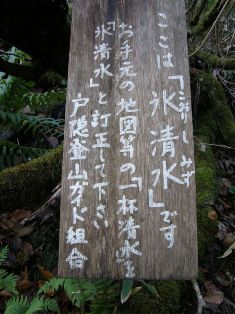 ここは「氷清水」です
こおりしみず
お手元の地図等の「一杯清水」を
「氷清水」と訂正して下さい
戸隠登山ガイド組合